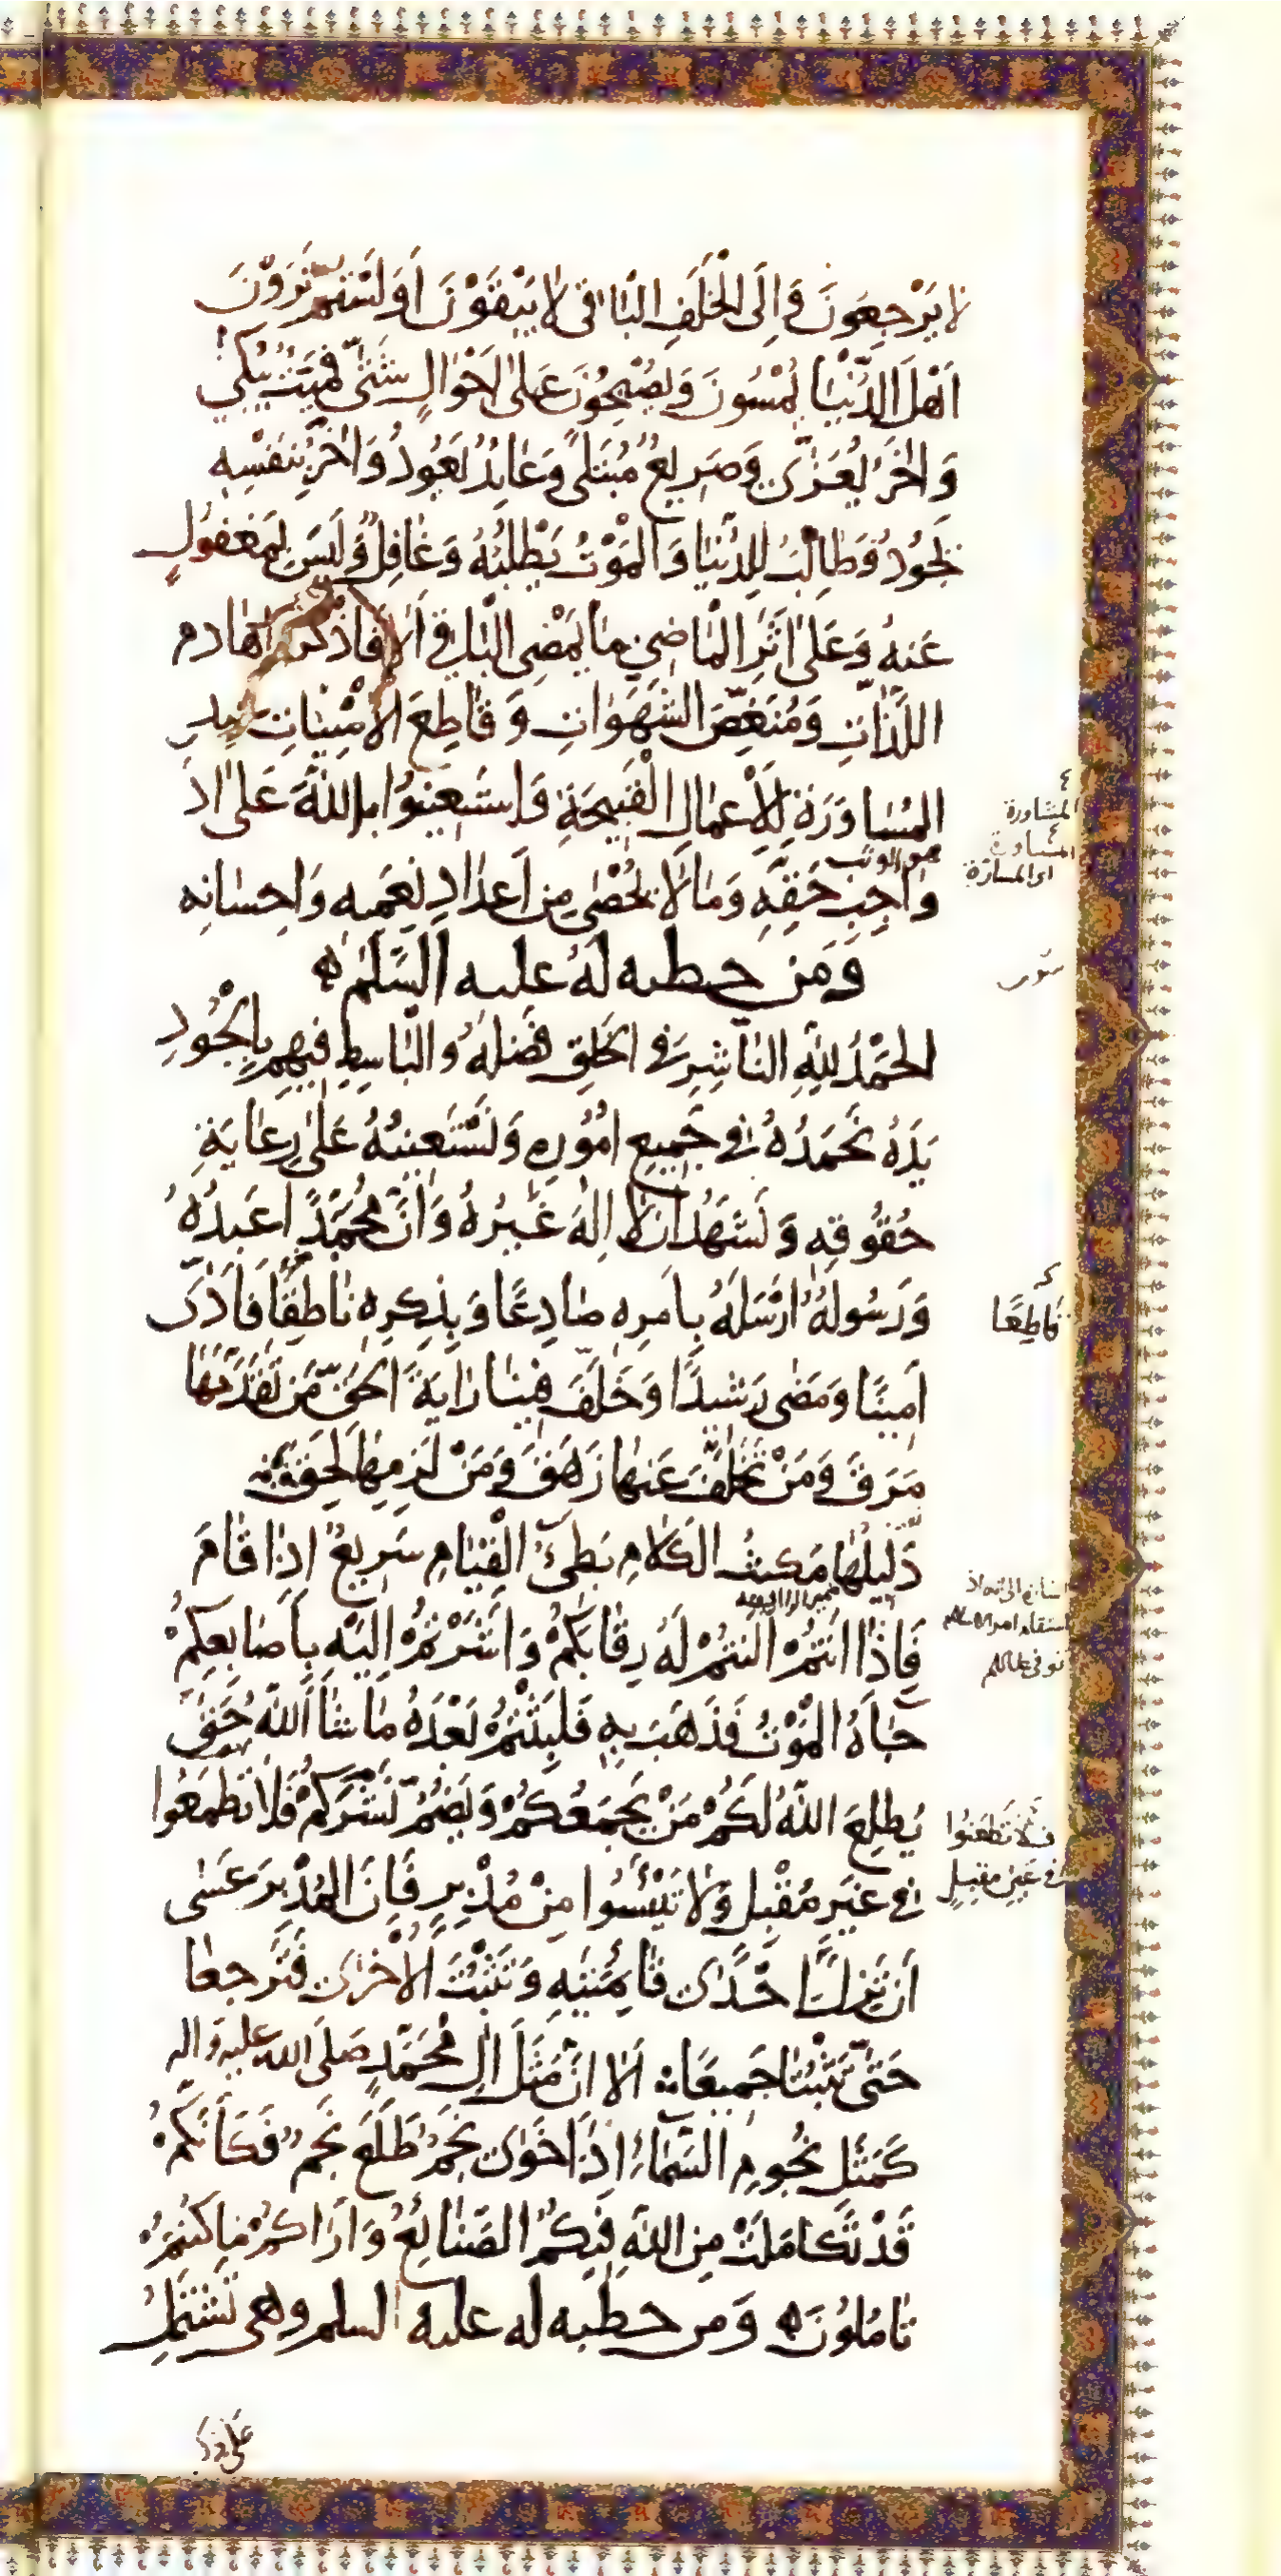 لا يَرْجِعُونَ وَاِلَى الْخَلَفِ الْبَاقى لا يَبْقَوْنَ اَوَلَسْتُمْ تَرَوْنَ
اَهْلَ الدُّنْيٰا يُمْسُونَ وَيُصْبِحُونَ عَلىٰ اَحْوٰالٍ شَتّىٰ فَمَيِّتٌ يُبْكىٰ
وَاٰخَرُ يُعَزّىٰ وَصَرِيعٌ مُبْتَلىً وَعٰائِدٌ يَعُودُ وَاٰخَرُ بِنَفْسِهِ
يَجُودُ وَطٰالِبٌ لِلدُّنْيٰا وَالْمَوْتُ يَطْلُبُهُ وَغٰافِلٌ وَلَيْسَ بِمَغْفُولٍ
عَنهُ وَعَلىٰ اَثَرِ الْمٰاضِي مٰا يَمْضِى الْبٰاقى اَلا فَاذْكُرُوا هٰادم
اللَّذّاتِ وَمُنَغِّصَ الشَّهَوٰاتِ وَ قٰاطِعَ الاُمْنِيٰاتِ عِنْدَ
الْمُسٰاوَرَةِ لِلاَعْمٰالِ الْقَبِيحَةِ وَاسْتَعِينُوا بِاللّٰهِ عَلىٰ اَدٰا
وٰاجِبِ حَقِّهِ وَمٰا لا يُحْصٰى مِن اَعدٰادِ نِعَمِه وَاِحسٰانِه
وَمَن خطبه لهُ عليه السَّلٰم
الحَمْدُ لِلّٰهِ النّٰاشِرِ فى الخَلقِ فَضلَهُ وَالْبٰاسِطِ فيهِم بِالْجُودِ
يَدَهُ نَحمَدُهُ فى جَمِيعِ امُوُرِهِ وَنَسْتَعينُهُ عَلىٰ رِعٰايَةِ
حُقُوقِهِ وَنَشْهَدُ ان لا اِلهَ غَيْرُهُ وَاَنَّ مُحَمَّدًا عَبدُهُ
وَرَسُولُهُ اَرْسَلَهُ بِاَمرِهِ صٰادِعًا وَبِذِكرِهِ نٰاطِقًا فَاَدّىٰ
اَمينًا وَمَضٰى رَشيدًا وَخَلَّفَ فِينٰا رٰايَةَ الحَقِّ مَن تَقَدَّمَهٰا
مَرَقَ وَمَنْ تَخَلَّفَ عَنهٰا زَهَقَ وَمَنْ لَزِمَهٰا لَحِقَ
دَلِيلُهٰا مَكيثُ الكَلامِ بَطِىءُ الْقِيٰامِ سَرِيعٌ اِذٰا قٰامَ
فَاِذٰا اَنتُمْ اَلَنتُمْ لَهُ رِقٰابَكُمْ وَاَشَرْتُمْ اِلَيْهِ بِاَصٰابِعِكُمْ
جٰاءَهُ الْمَوْتُ فَذَهَبَ بِهِ فَلَبِثْتُمْ بَعْدَهُ مٰا شٰاءَ اللّٰهُ حَتّىٰ
يُطلِعَ اللّٰهُ لَكُمْ مَنْ يَجمَعُكُمْ وَيَضُمُّ نَشْرَكُمْ فَلا تَطمَعُوا
فى غَيرِ مُقْبِلٍ وَلا تَيْئَسُوا مِنْ مُدْبِرٍ فَاِنَّ المُدْبِرَ عَسٰى
اَن تَزِلَّ اِحْدٰى قٰائِمَتَيْهِ وَتَثْبُتَ الاُخْرٰى فَتَرجِعٰا
حَتّىٰ تَثْبُتٰا جَمِيعًا اَلا اِنَّ مَثَلَ اٰلِ مُحَمَّدٍ صَلَى الله عليه وَاله
كَمَثَلِ نُجُومِ السَّمٰاءِ اِذٰا خَوٰى نَجْمٌ طَلَعَ نَجْمٌ فَكَاَنَّكُمْ
قَدْ تَكامَلَتْ مِنَ اللّٰهِ فِيكُمُ الصَّنٰائِعُ وَاَرٰاكُمْ مٰا كُنتُمْ
تٰامُلُونَ وَمن خطبه له عليه السلم وهى تَشتَمِلُ
المشاورة
المساورة
نَاطِعًا
فَلا تَطعَنُوا
فى عَينِ مقبِلٍ
عَلى ذكر